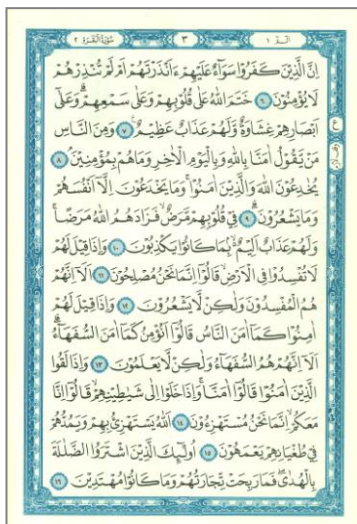 الٓمّٓ ١ ٣ سُورَةُ الْبَقَرَةِ ٢
اِنَّ الَّذِيْنَ كَفَرُوْا سَوَآءٌ عَلَيْهِمْ ءَاَنْذَرْتَهُمْ اَمْ لَمْ تُنْذِرْهُمْ
لَا يُؤْمِنُوْنَ ۶ خَتَمَ اللّٰهُ عَلٰى قُلُوْبِهِمْ وَعَلٰى سَمْعِهِمْ ؕ وَعَلٰٓى
اَبْصَارِهِمْ غِشَاوَةٌ وَّلَهُمْ عَذَابٌ عَظِيْمٌ ۷ وَمِنَ النَّاسِ
مَنْ يَّقُوْلُ اٰمَنَّا بِاللّٰهِ وَبِالْيَوْمِ الْاٰخِرِ وَمَا هُمْ بِمُؤْمِنِيْنَ ۸
يُخٰدِعُوْنَ اللّٰهَ وَالَّذِيْنَ اٰمَنُوْا ۚ وَمَا يَخْدَعُوْنَ اِلَّآ اَنْفُسَهُمْ
وَمَا يَشْعُرُوْنَ ۹ فِيْ قُلُوْبِهِمْ مَّرَضٌ ۙ فَزَادَهُمُ اللّٰهُ مَرَضًا ۚ
وَلَهُمْ عَذَابٌ اَلِيْمٌ ۢ ۙ بِمَا كَانُوْا يَكْذِبُوْنَ ۱۰ وَاِذَا قِيْلَ لَهُمْ
لَا تُفْسِدُوْا فِى الْاَرْضِ ۙ قَالُوْٓا اِنَّمَا نَحْنُ مُصْلِحُوْنَ ۱۱ اَلَآ اِنَّهُمْ
هُمُ الْمُفْسِدُوْنَ وَلٰكِنْ لَّا يَشْعُرُوْنَ ۱۲ وَاِذَا قِيْلَ لَهُمْ
اٰمِنُوْا كَمَآ اٰمَنَ النَّاسُ قَالُوْٓا اَنُؤْمِنُ كَمَآ اٰمَنَ السُّفَهَآءُ ؕ
اَلَآ اِنَّهُمْ هُمُ السُّفَهَآءُ وَلٰكِنْ لَّا يَعْلَمُوْنَ ۱۳ وَاِذَا لَقُوا
الَّذِيْنَ اٰمَنُوْا قَالُوْٓا اٰمَنَّا ۚ وَاِذَا خَلَوْا اِلٰى شَيٰطِيْنِهِمْ ۙ قَالُوْٓا اِنَّا
مَعَكُمْ ۙ اِنَّمَا نَحْنُ مُسْتَهْزِءُوْنَ ۱۴ اَللّٰهُ يَسْتَهْزِئُ بِهِمْ وَيَمُدُّهُمْ
فِيْ طُغْيَانِهِمْ يَعْمَهُوْنَ ۱۵ اُولٰٓئِكَ الَّذِيْنَ اشْتَرَوُا الضَّلٰلَةَ
بِالْهُدٰى ۪ فَمَا رَبِحَتْ تِّجَارَتُهُمْ وَمَا كَانُوْا مُهْتَدِيْنَ ۱۶